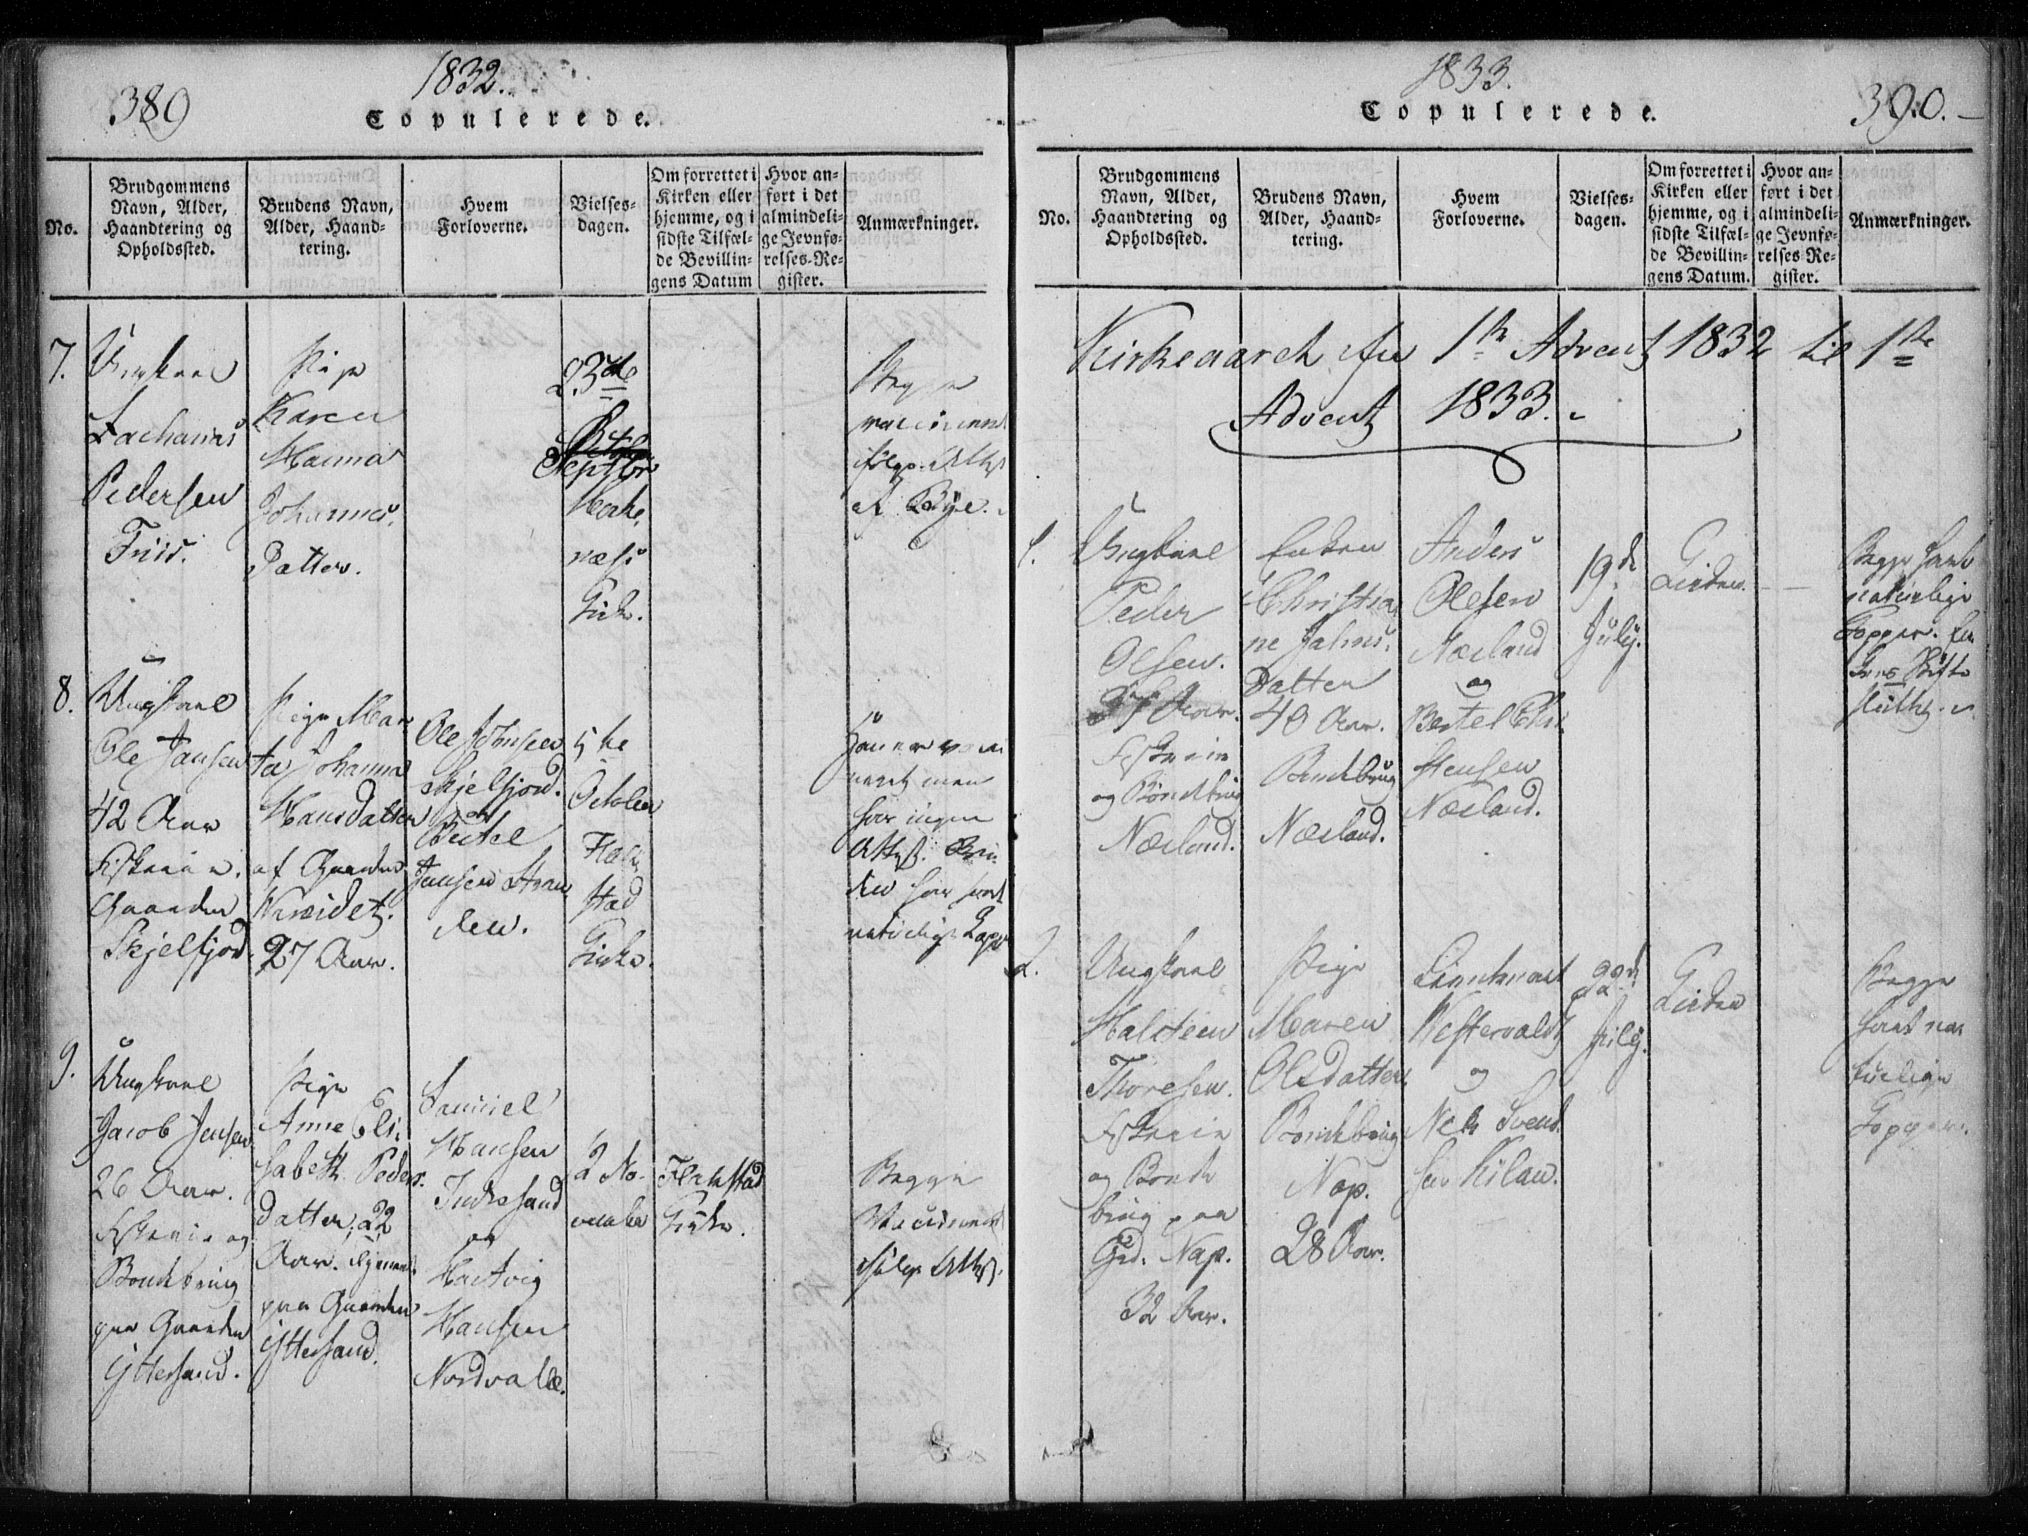 389
1832.
Copulerede.
No.
Brudgommens
Navn, Alder,
Haandtering og
Opholdssted.
Brudens Navn,
Alder, Haand-
tering.
Hvem
Forloverne.
Vielses-
dagen.
Om forrettet i
Kirken eller
hjemme, og i
sidste Tilfæl-
de Bevillin-
gens Datum
Hvor an-
ført i det
almindeli-
ge Jevnfø-
relses-Re-
gister.
Anmærkninger.
7.
Ungkarl
Zacharias
Pedersen
Friis.
Pige
Karen
Hanna
Johannes
Datter.
23de
Septbr
næs
Kirke.
Begge
vaccinerede
ifølge Attest
af Bye.
8.
Ungkarl
Ole Jansen
42 Aar
Gaarden
Skjelfjord
Pige Mar
ta Johanna
Hansdatter
af Gaarden
27 Aar.
Ole Johnsen
Skjelfjord.
og
Jansen
den.
5te
October
Flak
stad
Kirke.
Han er vacci
neret men
har ingen
Attest. Bru
den har havt
naturlige Kopper
9.
Ungkarl
Jacob Jensen
26 Aar.
Fiskerie og
Bondebrug
paa Gaarden
Yttersand.
Pige
Anne Eli
sabeth Peders
datter, 22
Aar.
paa Gaarden
Yttersand.
Samuel
Hansen
Indresand
og
Hartvig
Hansen
2 No-
vember
Flakstad
Kirke.
Begge
Vaccinerede
ifølge Attest.
1833.
Copulerede.
390.
No.
Brudgommens
Navn, Alder,
Haandtering og
Opholdssted.
Brudens Navn,
Alder, Haand-
tering.
Hvem
Forloverne.
Vielses-
dagen.
Om forrettet i
Kirken eller
hjemme, og i
sidste Tilfæl-
de Bevillin-
gens Datum.
Hvor an-
ført i det
almindeli-
ge Jevnfø-
relses Re-
gister.
Anmærkninger.
Kirkeaaret fra 1ste Advent 1832 til 1ste
Advent 1833.
1.
Ungkarl
Peder
Olsen.
Aar.
Fiskerie
og Bondebrug
Næsland.
Enken
Christia
ne
Datter
40 Aar.
Bondebrug
Næsland.
Anders
Olesen
Næsland
og
Bertel Chri
stensen
Næsland.
19de
Julij.
Kirken
Begge havt
naturlige
Kopper.
2.
Ungkarl
Halsteen
Thoresen.
Fiskerie
og Bonde
brug paa
Grd. Nap.
32 Aar.
Pige
Maren
Olsdatter
Bondebrug
Nap.
28 Aar.
Westervaldt
og
Svend
sen Kilan.
22de
Julij.
Kirken
Begge
havt na
turlige
Kopper.